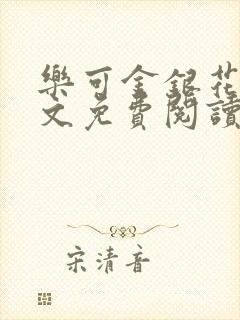 樂可金銀花
文免費閱讀
宋清音